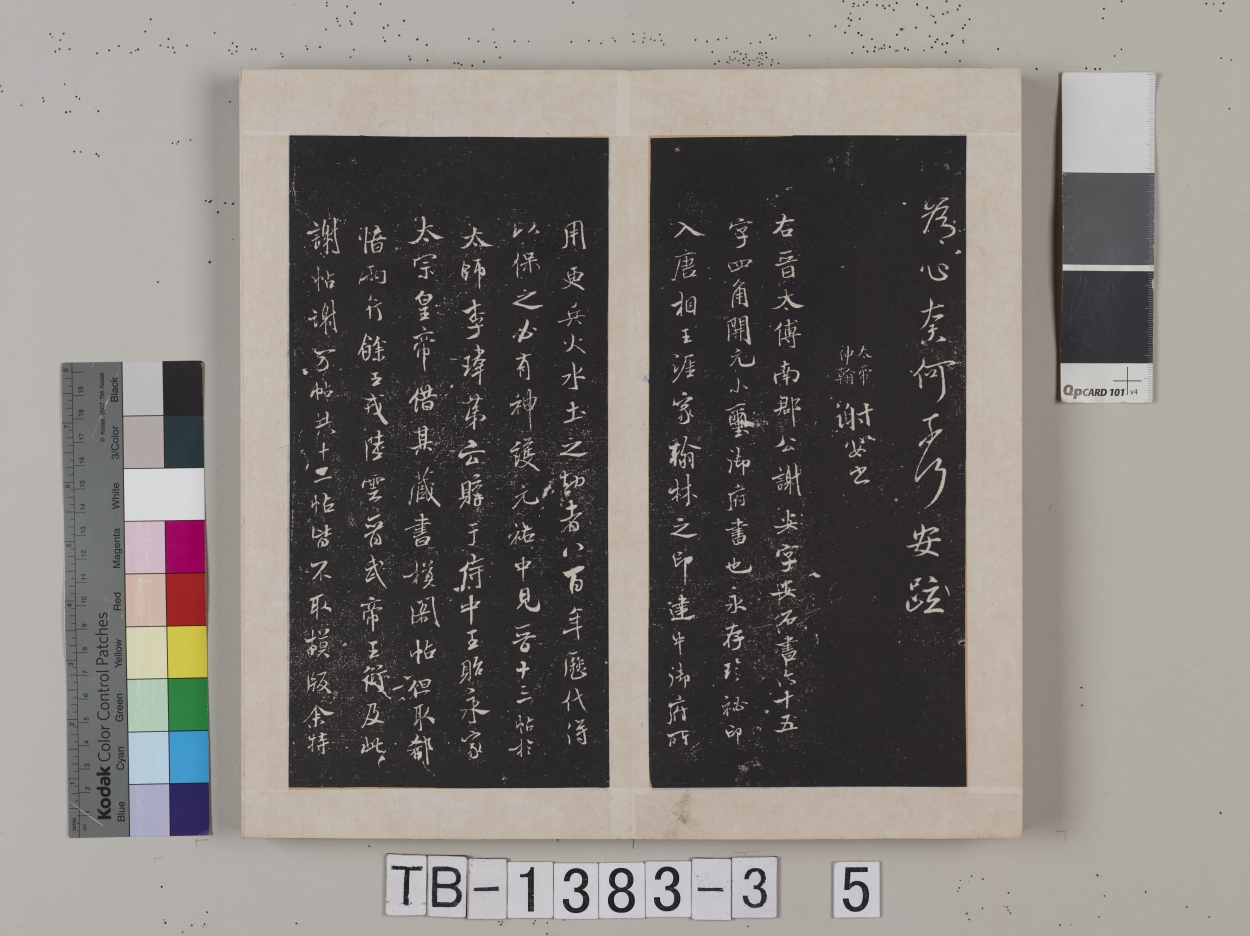 為心奈何安疏
神翰
謝安書
右晉太傅南郡公謝安字安石書六十五
字四角開元小璽御府書也永存珍祕印
入唐相王涯家翰林之印建中御府所
用更兵火水土之刼者八百年歷代得
以保之必有神護元祐中見晉十三帖於
太師李瑋第云購于侍中王貽永家
太宗皇帝借其藏書摸閣帖但取郗
愔兩行餘王戎陸雲晉武帝王衍及此
謝帖謝萬帖共十二帖皆不取摸版余特
Kodak Color Control Patches
Blue
Cyan
Green
Yellow
Red
Magenta
White
3/Color
Black
QpCARD 101 v4
TB-1383-3 5